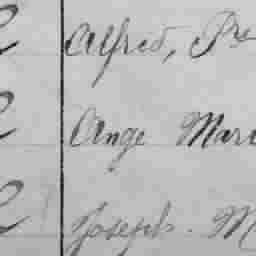 Alfred, Pre
Ange Mari
Joseph. M